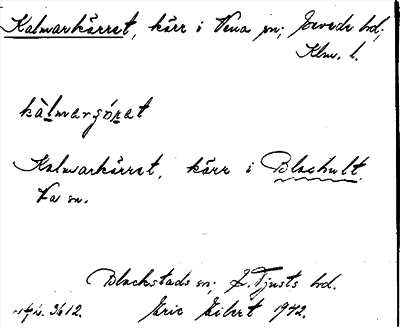 Kalmarkärret, kärr i Vena sn; Sevede hd;
Klm. l.
kàlmargọ́ṛat
Kalmarkärret, kärr i Blashult.
Va sn.
Blackstads sn; S. Tjusts hd.
3612. Eric Eibert 1942.